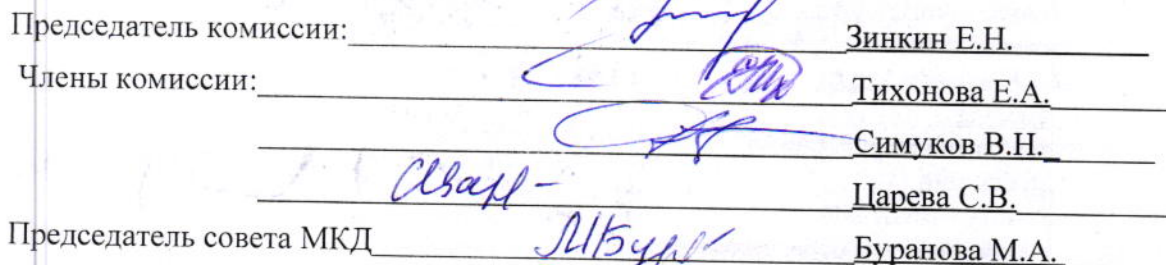 Председатель комиссии: Зинкин Е.Н.
Члены комиссии: Тихонова Е.А.
Симуков В.Н.
Царева С.В.
Председатель совета МКД Буранова М.А.